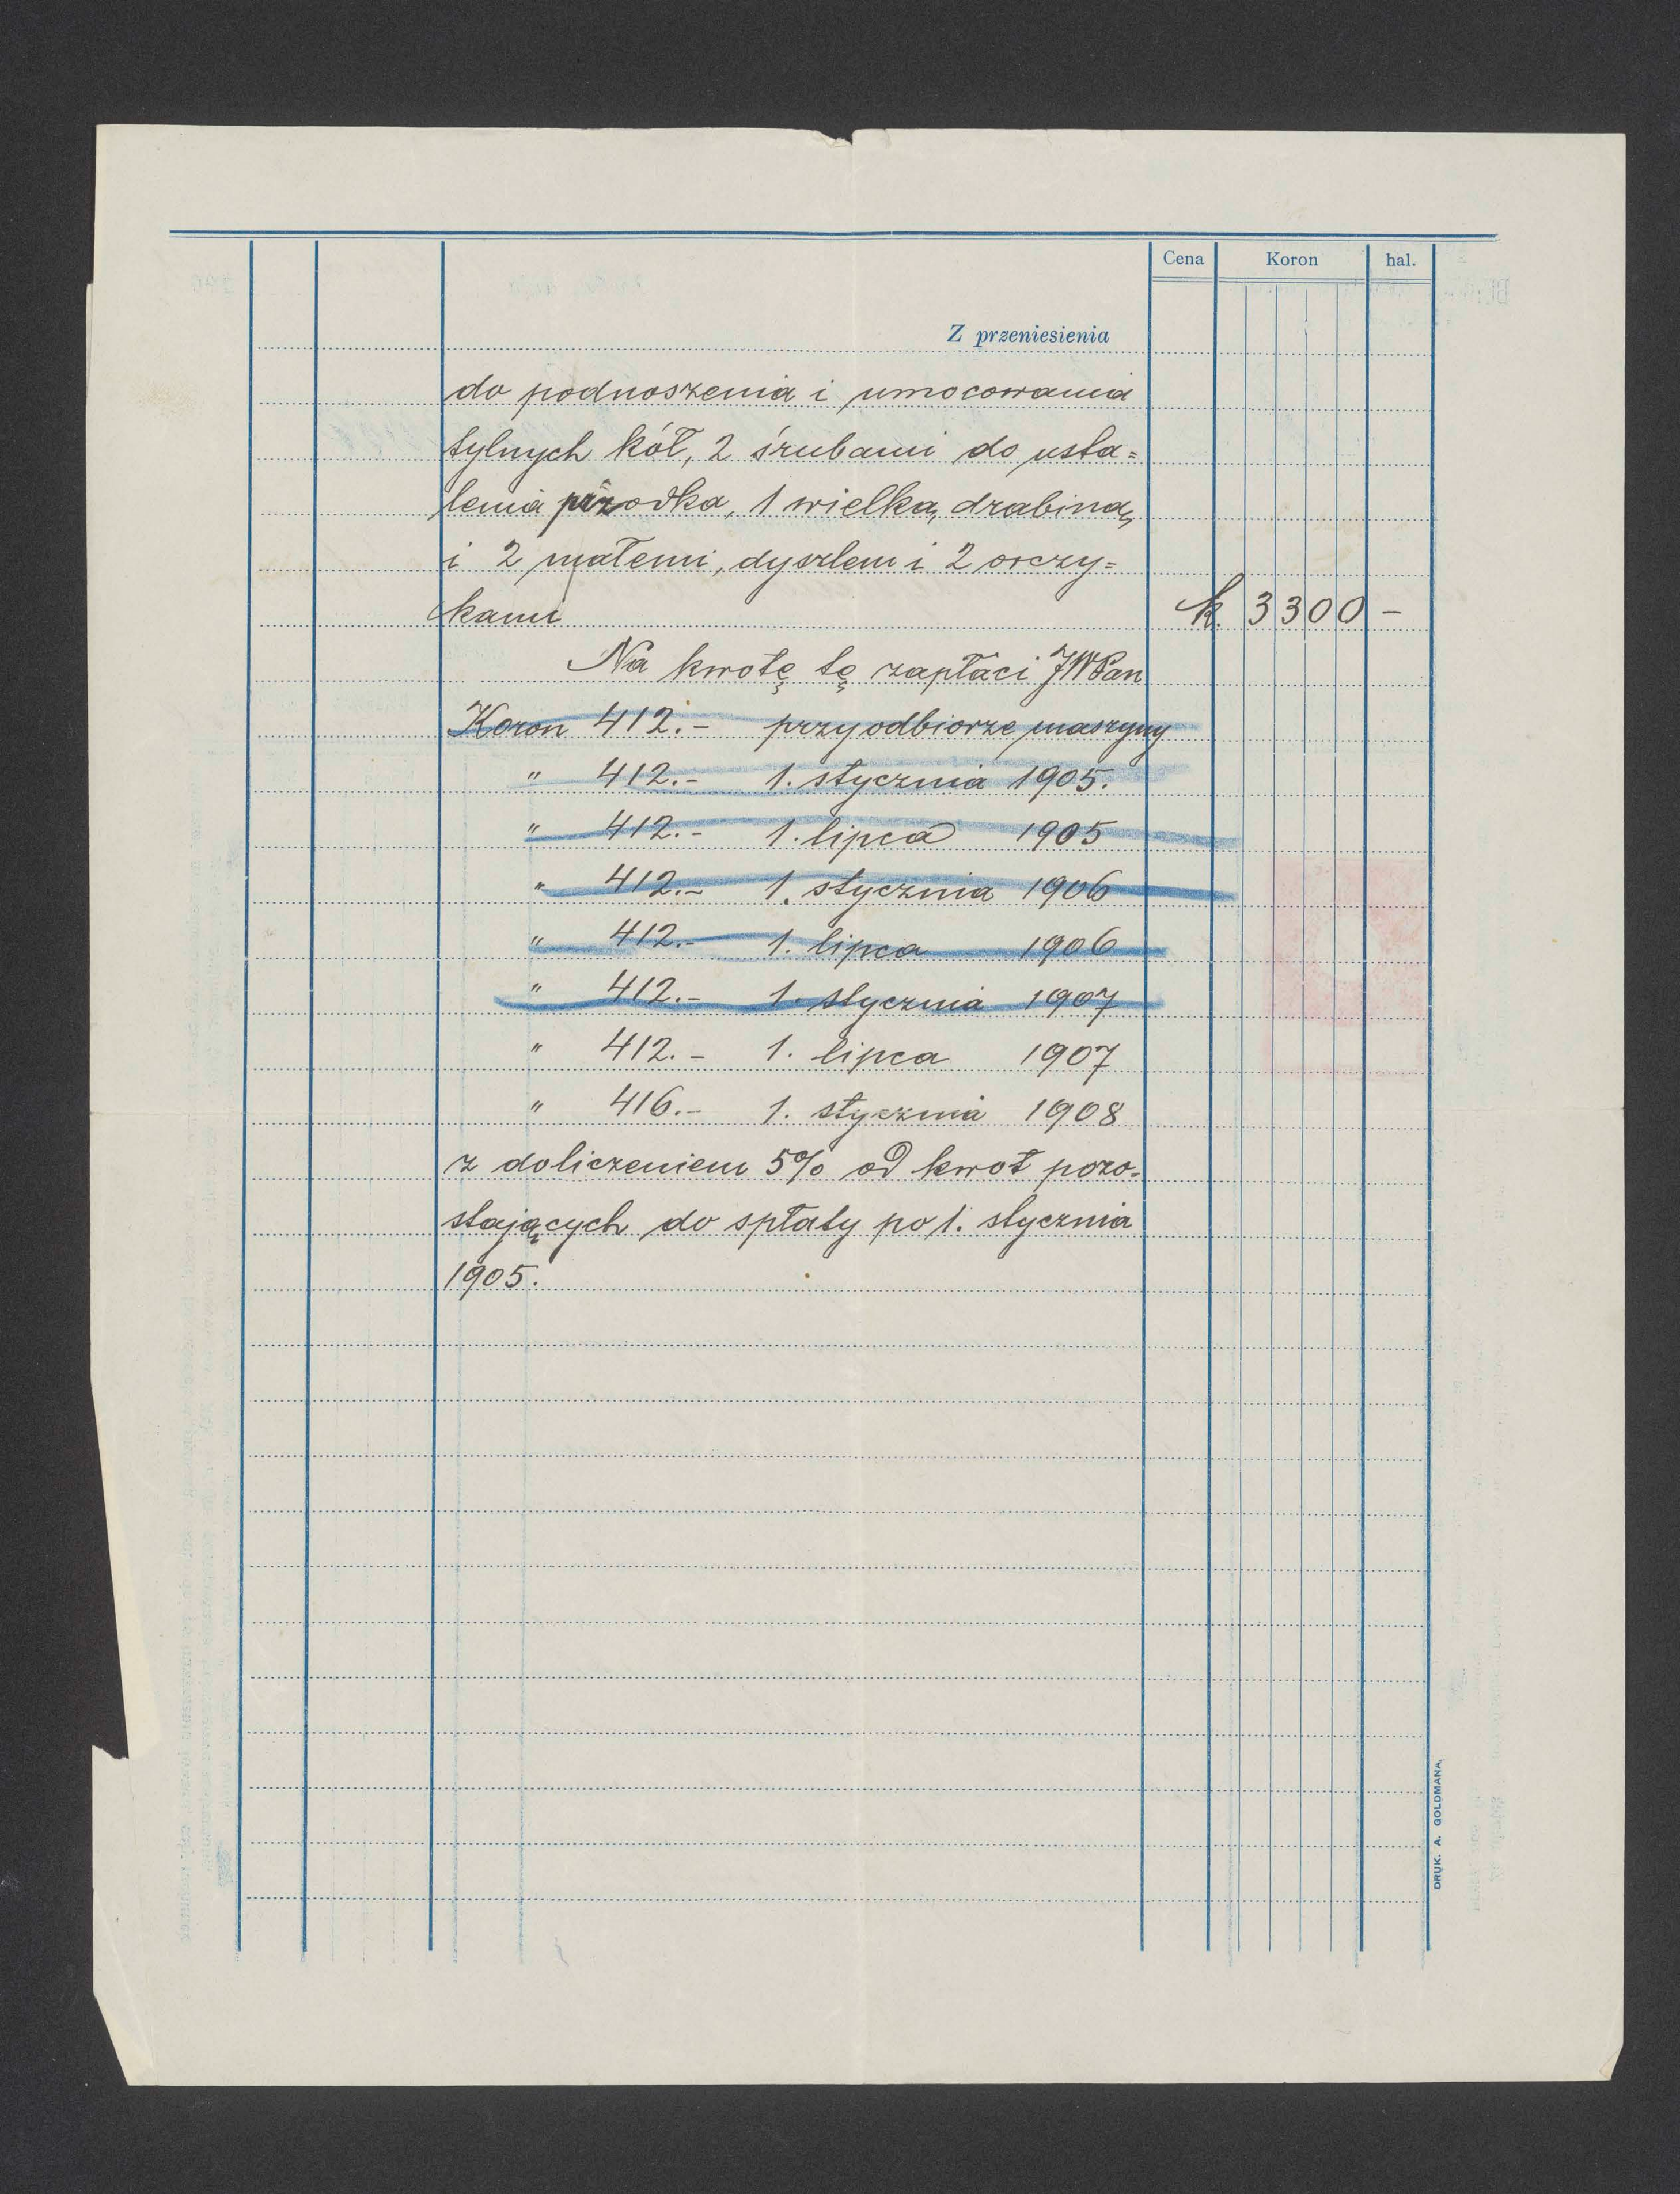 Cena Koron hal.
Z przeniesienia
do podnoszenia i umocowania
tylnych kół, 2 śrubami do usta=
lenia przodka, 1 wielką drabiną,
i 2 małemi, dyszlem i 2 orczy=
kami K. 3300 –
Na kwotę tę zapłaci JWPan
Koron 412.– przy odbiorze maszyny
" 412.– 1. stycznia 1905.
" 412.– 1. lipca 1905
" 412.– 1. stycznia 1906
" 412.– 1. lipca 1906
" 412.– 1. stycznia 1907
" 412.– 1. lipca 1907
" 416.– 1. stycznia 1908
z doliczeniem 5% od kwot pozo=
stających do spłaty po 1. stycznia
1905.
DRUK. A. GOLDMANA.